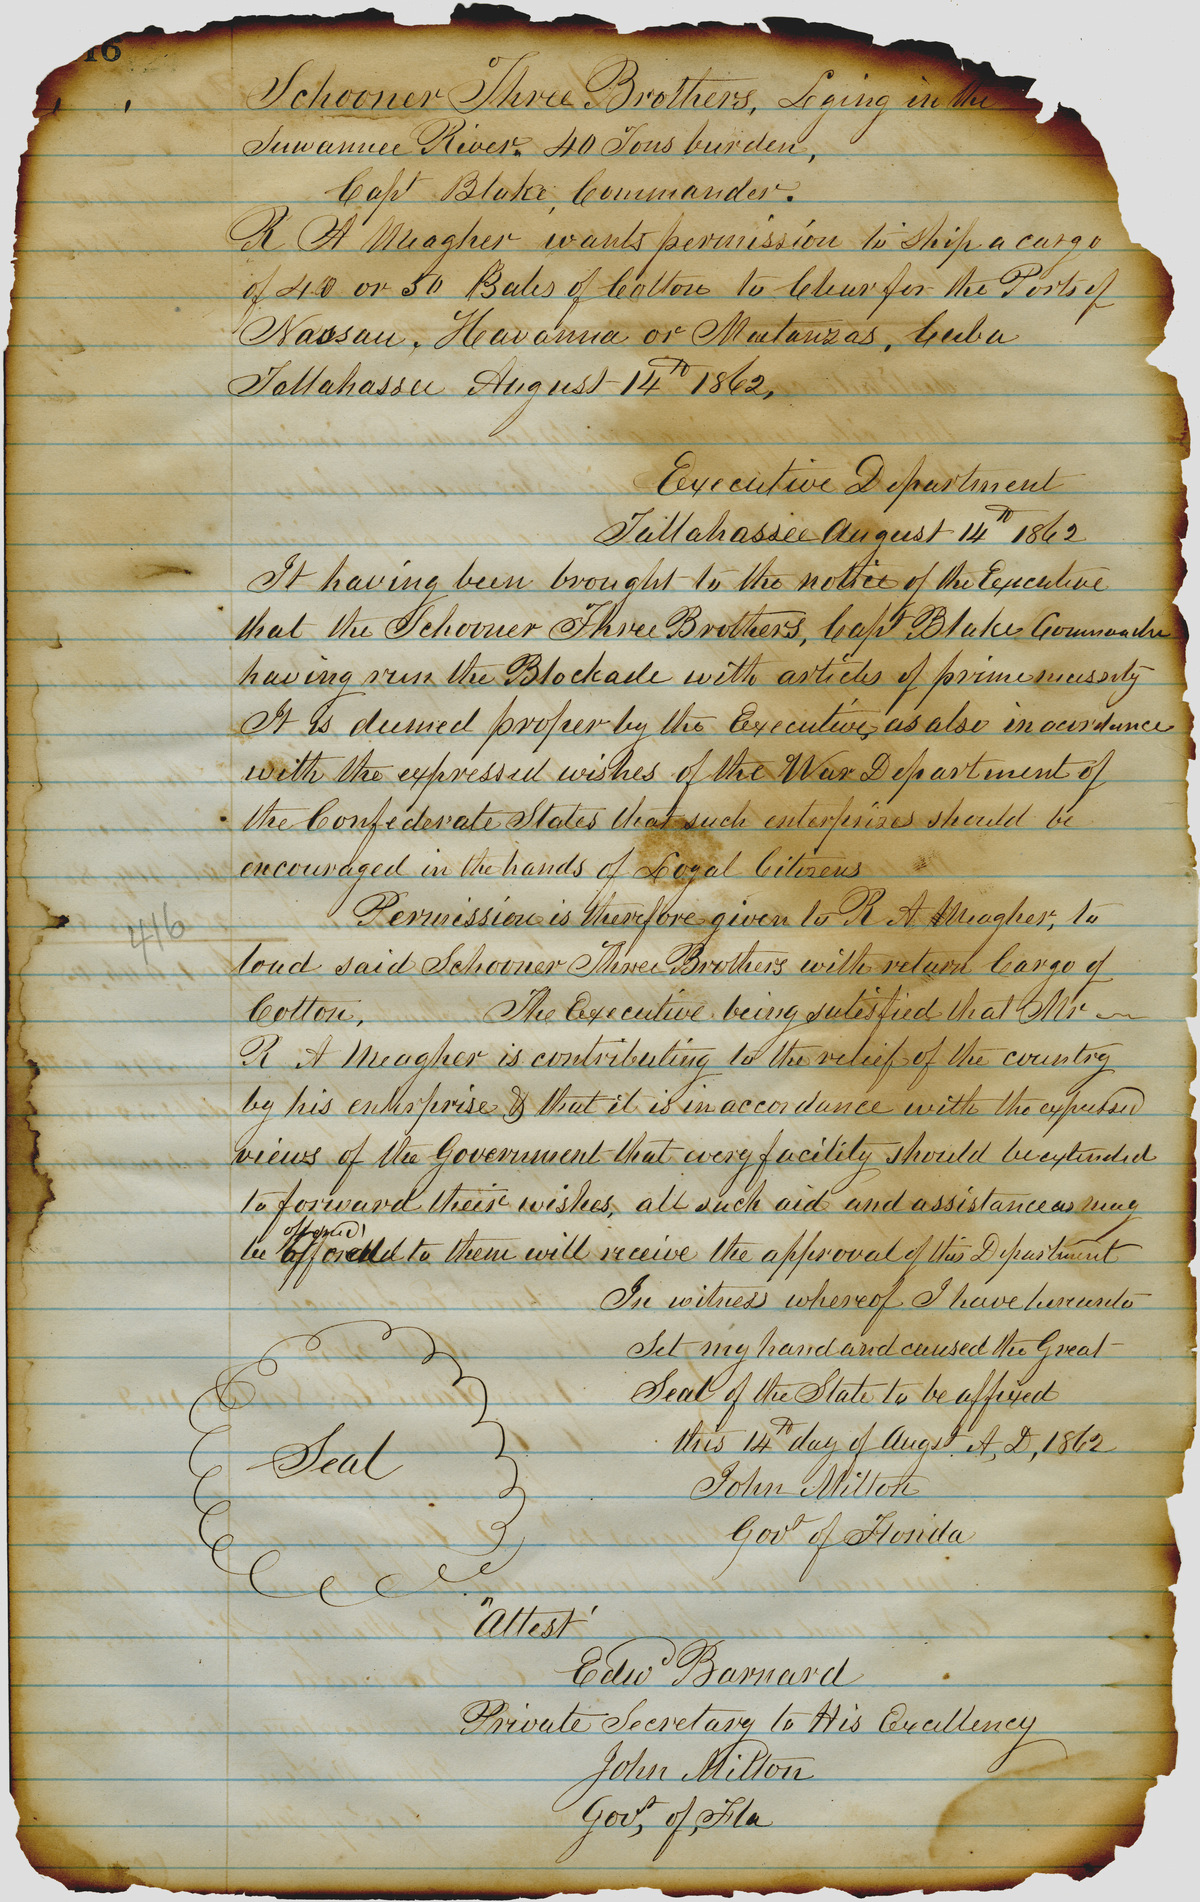 16
Schooner Three Brothers, Lying in the
Suwannee River. 40 Tons burden,
Capt Blake, Commander.
R A Meagher wants permission to ship a cargo
of 40 or 50 Bales of Cotton to Clear for the Ports of
Nassau, Havanna or Matanzas, Cuba
Tallahassee August 14th 1862,
Executive Department
Tallahassee August 14th 1862
It having been brought to the notice of the Executive
that the Schooner Three Brothers, Capt Blake Commander
having run the Blockade with articles of prime necessity
It is deemed proper by the Executive, as also in acordance
with the expressed wishes of the War Department of
the Confederate States that such enterprises should be
encouraged in the hands of Loyal Citizens
Permission is therefore given to R A Meagher, to
416
load said Schooner Three Brothers with return Cargo of
Cotton. The Executive being satisfied that Mr
R A Meagher is contributing to the relief of the country
by his enterprise & that it is in accordance with the expressed
views of the Government that every facility should be extended
to forward their wishes, all such aid and assistance as may
be afforded to them will receive the approval of this Department
In witness whereof I have hereunto
Set my hand and caused the Great
Seal of the State to be affixed
this 14th day of Augst A, D, 1862
Seal
John Milton
Govr of Florida
"Attest'
Edwd Barnard
Private Secretary to His Excellency
John Milton
Govr, of, Fla